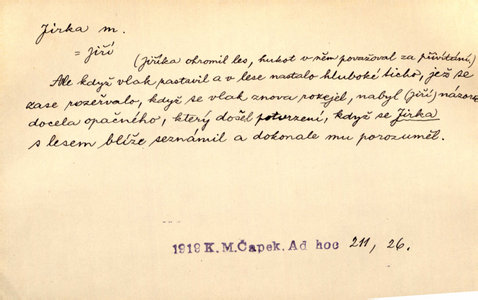 Jirka m.
= Jiří
(Jiříka ohromil les, hukot v něm považoval za přivítání.)
Ale když vlak zastavil a v lese nastalo hluboké ticho, jež se
zase rozeřvalo, když se vlak znova rozejel, nabyl (Jiří) názoru
docela opačného, který došel potvrzení, když se Jirka
s lesem blíže seznámil a dokonale mu porozuměl.
1919 K. M. Čapek. Ad hoc 211, 26.